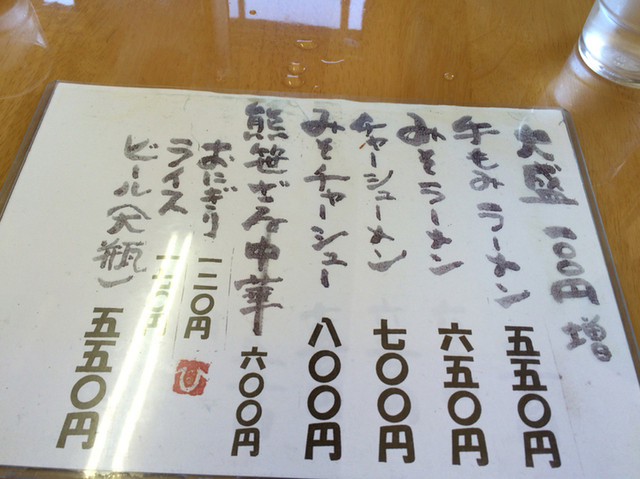 大盛 一〇〇円増
手もみラーメン 五五〇円
みそラーメン 六五〇円
チャーシューメン 七〇〇円
みそチャーシュー 八〇〇円
熊笹ざる中華 六〇〇円
おにぎり 一二〇円
ライス 円
ビール(大瓶) 五五〇円
ひ